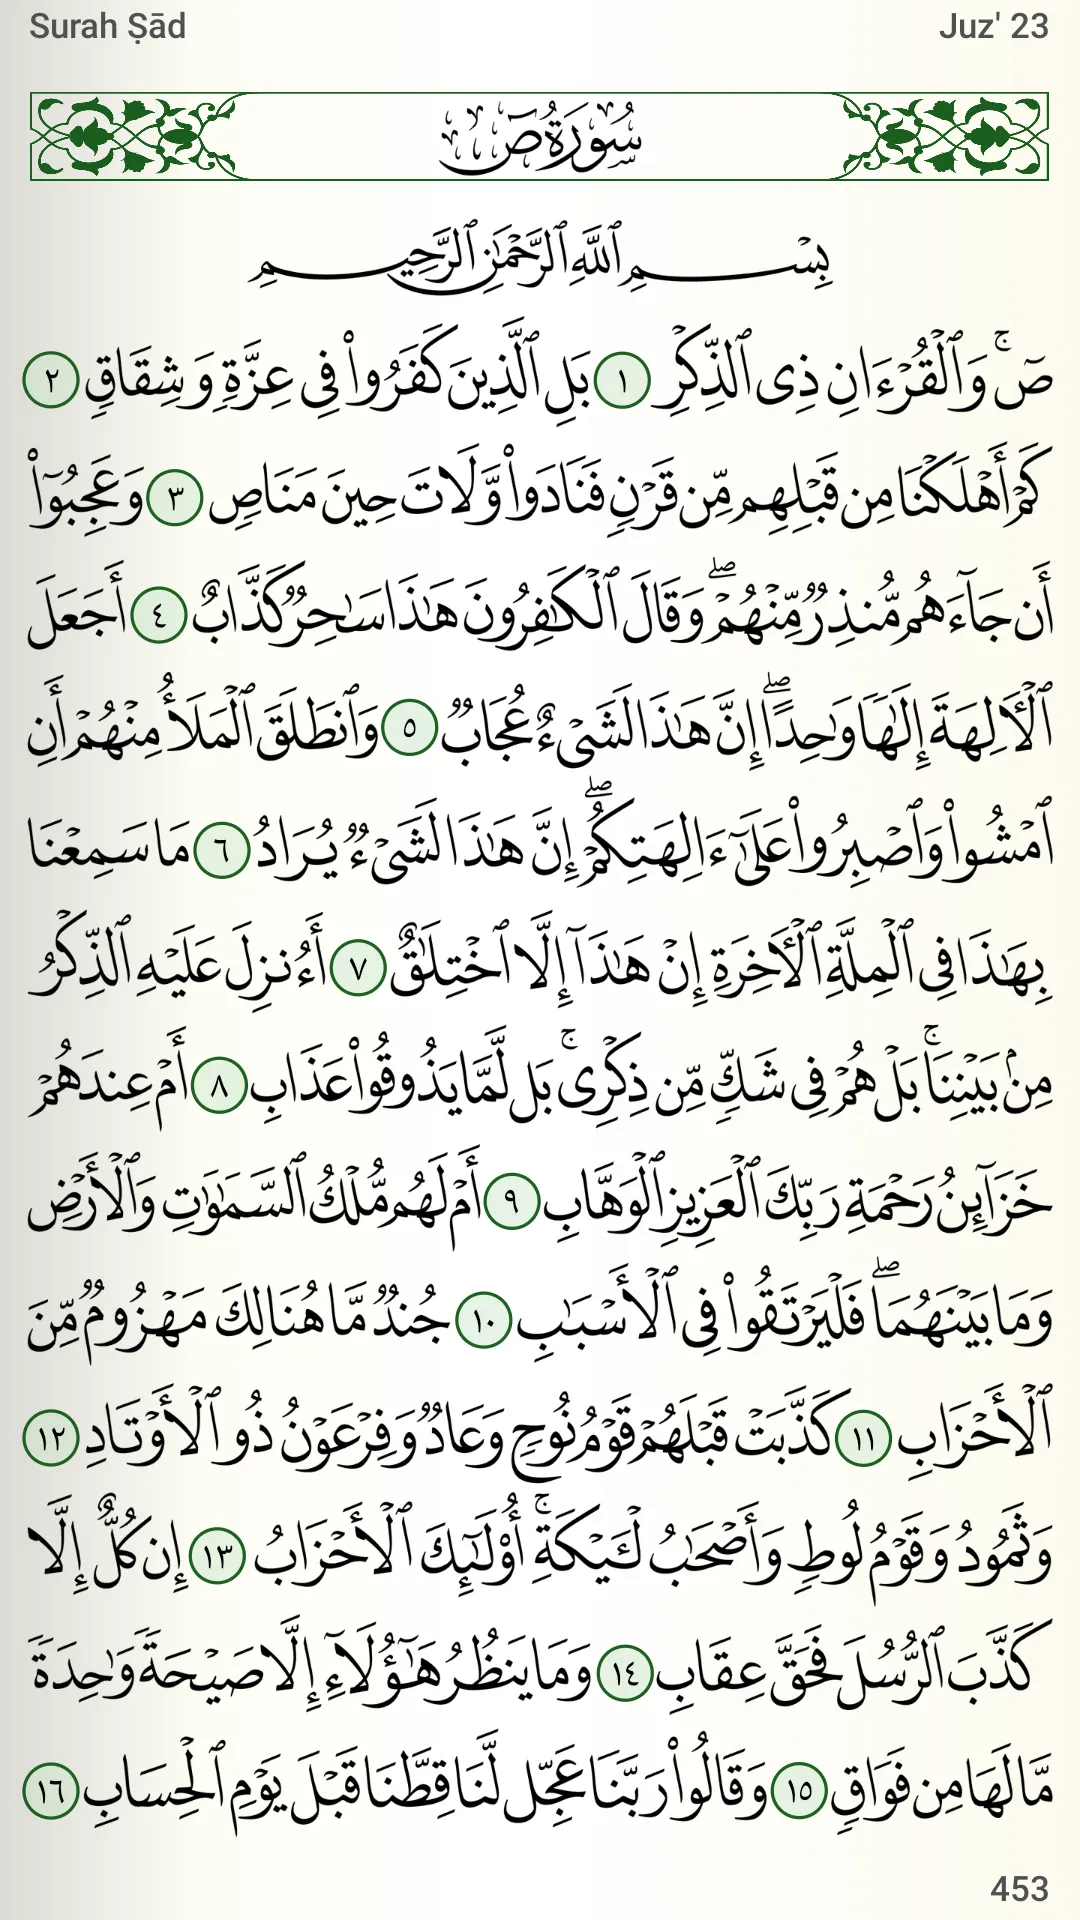 Surah Ṣād
Juz' 23
سُورَةُ صٓ
بِسْمِ ٱللَّهِ ٱلرَّحْمَٰنِ ٱلرَّحِيمِ
صٓ ۚ وَٱلْقُرْءَانِ ذِى ٱلذِّكْرِ ١ بَلِ ٱلَّذِينَ كَفَرُوا۟ فِى عِزَّةٍ وَشِقَاقٍ ٢
كَمْ أَهْلَكْنَا مِن قَبْلِهِم مِّن قَرْنٍ فَنَادَوا۟ وَّلَاتَ حِينَ مَنَاصٍ ٣ وَعَجِبُوٓا۟
أَن جَآءَهُم مُّنذِرٌ مِّنْهُمْ ۖ وَقَالَ ٱلْكَٰفِرُونَ هَٰذَا سَٰحِرٌ كَذَّابٌ ٤ أَجَعَلَ
ٱلْءَالِهَةَ إِلَٰهًا وَٰحِدًا ۖ إِنَّ هَٰذَا لَشَىْءٌ عُجَابٌ ٥ وَٱنطَلَقَ ٱلْمَلَأُ مِنْهُمْ أَنِ
ٱمْشُوا۟ وَٱصْبِرُوا۟ عَلَىٰٓ ءَالِهَتِكُمْ ۖ إِنَّ هَٰذَا لَشَىْءٌ يُرَادُ ٦ مَا سَمِعْنَا
بِهَٰذَا فِى ٱلْمِلَّةِ ٱلْءَاخِرَةِ إِنْ هَٰذَآ إِلَّا ٱخْتِلَٰقٌ ٧ أَءُنزِلَ عَلَيْهِ ٱلذِّكْرُ
مِنۢ بَيْنِنَا ۚ بَلْ هُمْ فِى شَكٍّ مِّن ذِكْرِى ۚ بَل لَّمَّا يَذُوقُوا۟ عَذَابِ ٨ أَمْ عِندَهُمْ
خَزَآئِنُ رَحْمَةِ رَبِّكَ ٱلْعَزِيزِ ٱلْوَهَّابِ ٩ أَمْ لَهُم مُّلْكُ ٱلسَّمَٰوَٰتِ وَٱلْأَرْضِ
وَمَا بَيْنَهُمَا ۖ فَلْيَرْتَقُوا۟ فِى ٱلْأَسْبَٰبِ ١٠ جُندٌ مَّا هُنَالِكَ مَهْزُومٌ مِّنَ
ٱلْأَحْزَابِ ١١ كَذَّبَتْ قَبْلَهُمْ قَوْمُ نُوحٍ وَعَادٌ وَفِرْعَوْنُ ذُو ٱلْأَوْتَادِ ١٢
وَثَمُودُ وَقَوْمُ لُوطٍ وَأَصْحَٰبُ لْـَٔيْكَةِ ۚ أُو۟لَٰٓئِكَ ٱلْأَحْزَابُ ١٣ إِن كُلٌّ إِلَّا
كَذَّبَ ٱلرُّسُلَ فَحَقَّ عِقَابِ ١٤ وَمَا يَنظُرُ هَٰٓؤُلَآءِ إِلَّا صَيْحَةً وَٰحِدَةً
مَّا لَهَا مِن فَوَاقٍ ١٥ وَقَالُوا۟ رَبَّنَا عَجِّل لَّنَا قِطَّنَا قَبْلَ يَوْمِ ٱلْحِسَابِ ١٦
453